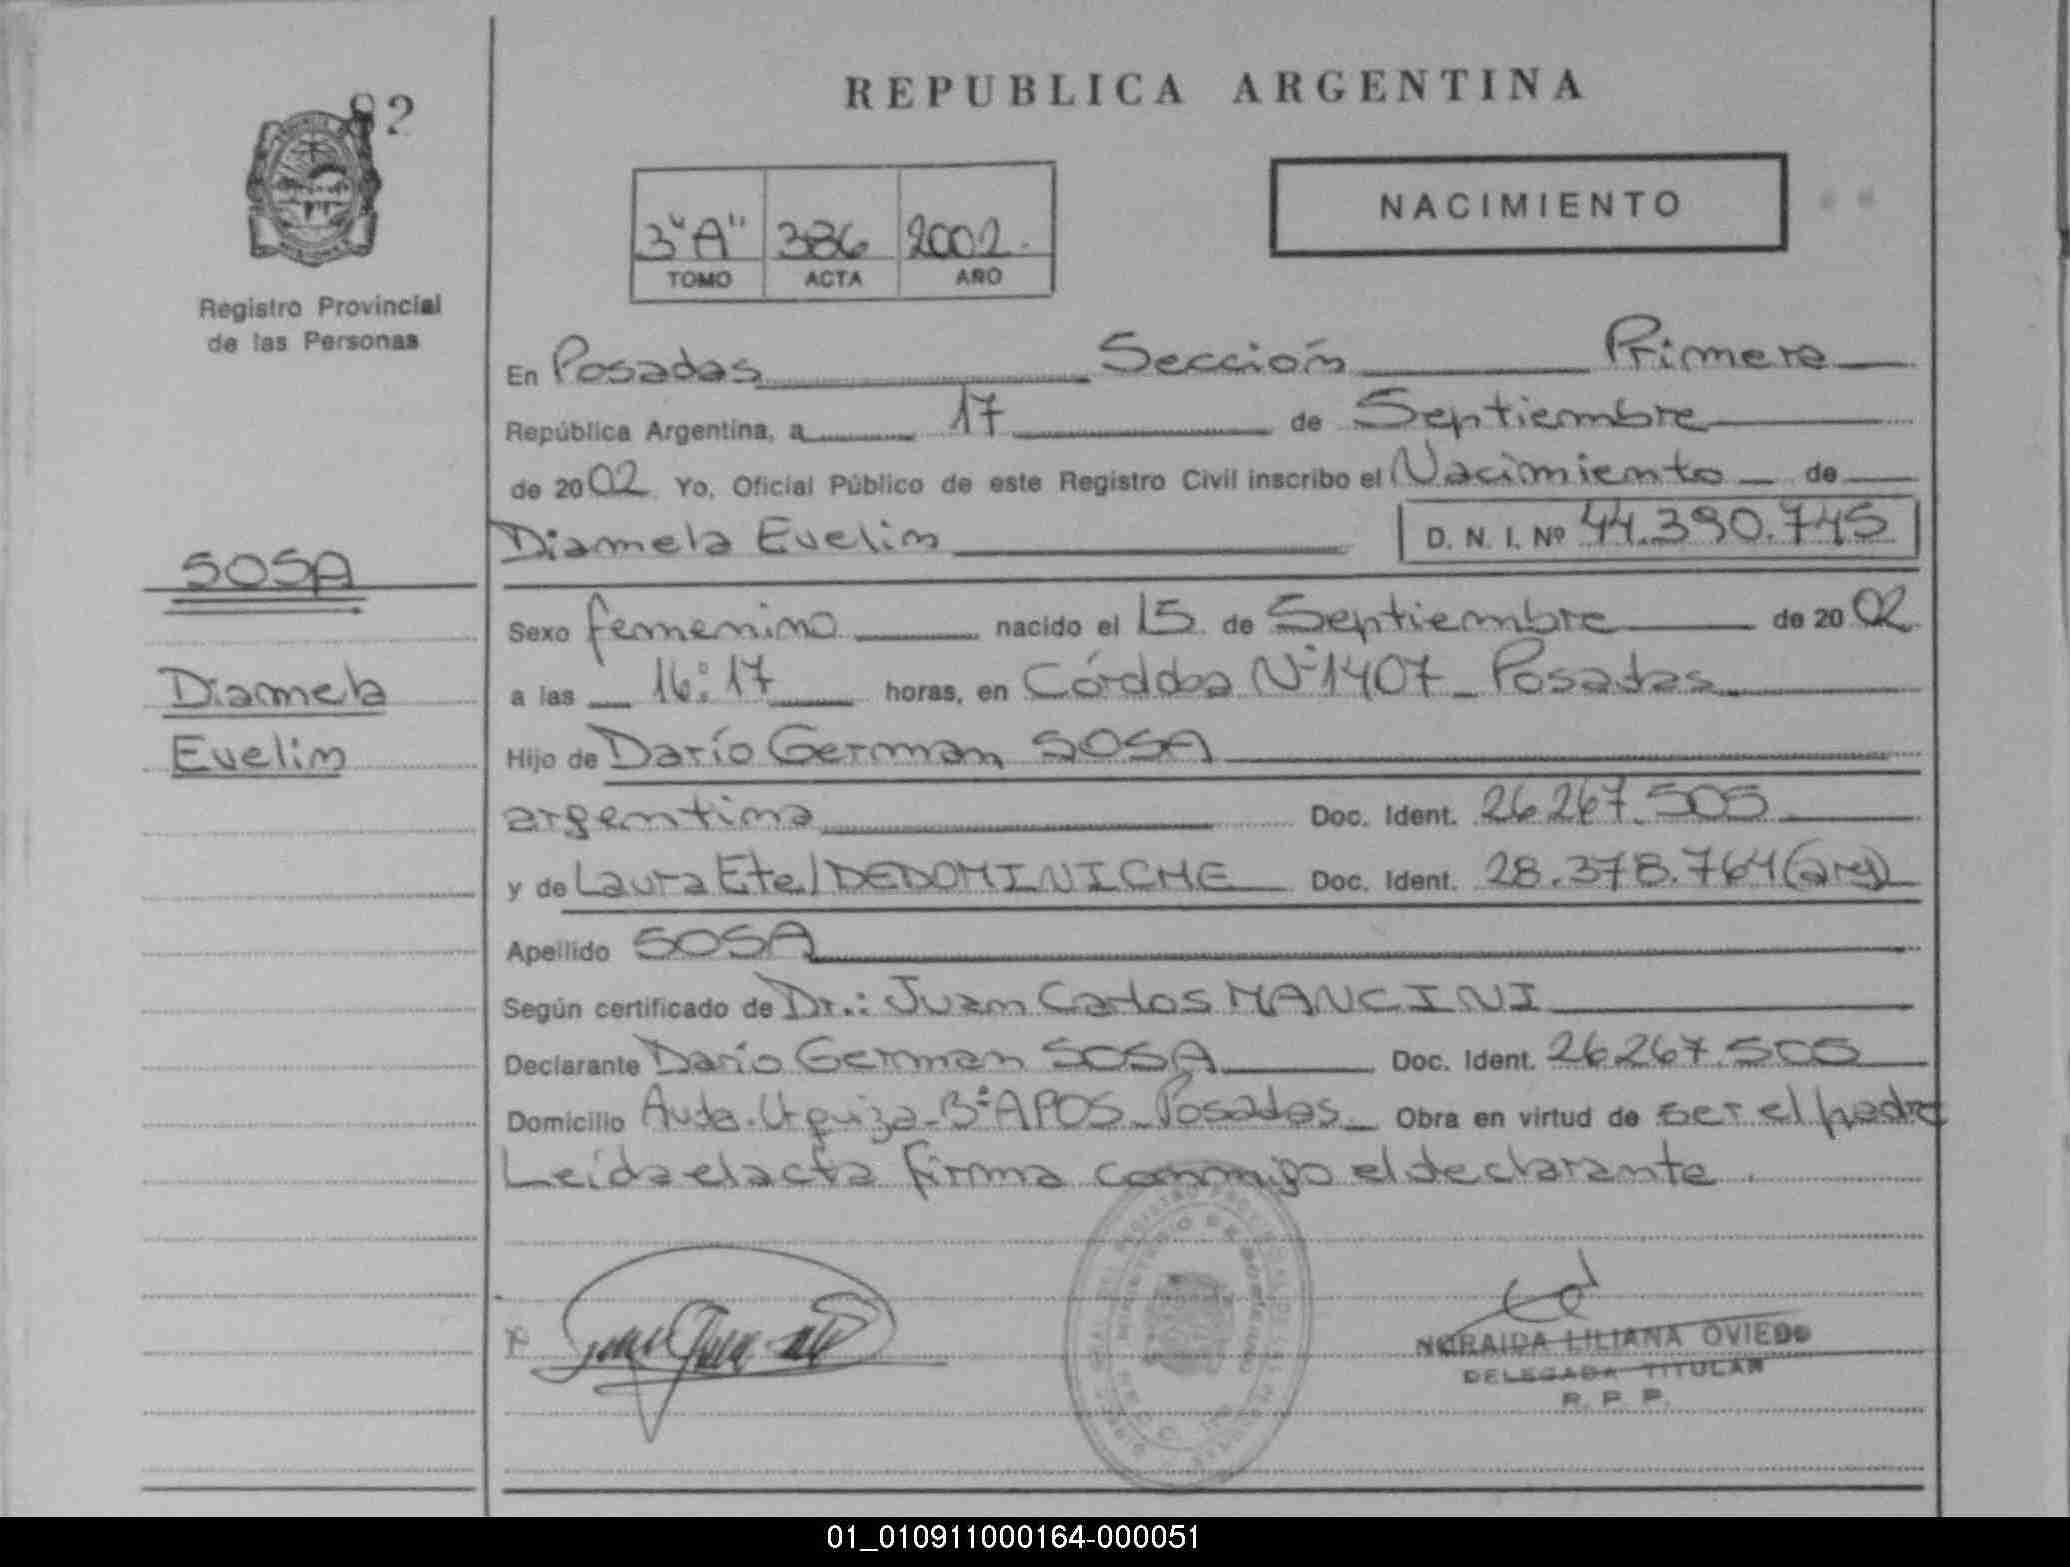 82
REPUBLICA ARGENTINA
NACIMIENTO
3"A" 386 2002.
TOMO ACTA AÑO
Registro Provincial
de las Personas
En Posadas Sección Primera
República Argentina, a 17 de Septiembre
de 2002. Yo, Oficial Público de este Registro Civil inscribo el Nacimiento de
Diamela Evelin D. N. I. Nº 44.390.745
SOSA
Diamela
Evelin
Sexo femenino nacido el 15 de Septiembre de 2002
a las 16:17 horas, en Córdoba Nº1407 - Posadas
Hijo de Darío German SOSA
argentina Doc. Ident. 26.267.505
y de Laura Etel DEDOMINICHE Doc. Ident. 28.378.764 (arg)
Apellido SOSA
Según certificado de Dr.: Juan Carlos MANCINI
Declarante Darío German SOSA Doc. Ident. 26.267.505
Domicilio Avda. Urquiza - Bº APOS - Posadas Obra en virtud de ser el padre
Leída el acta firma conmigo el declarante.
NORAIDA LILIANA OVIEDO
DELEGADA TITULAR
R. P. P.
01_010911000164-000051